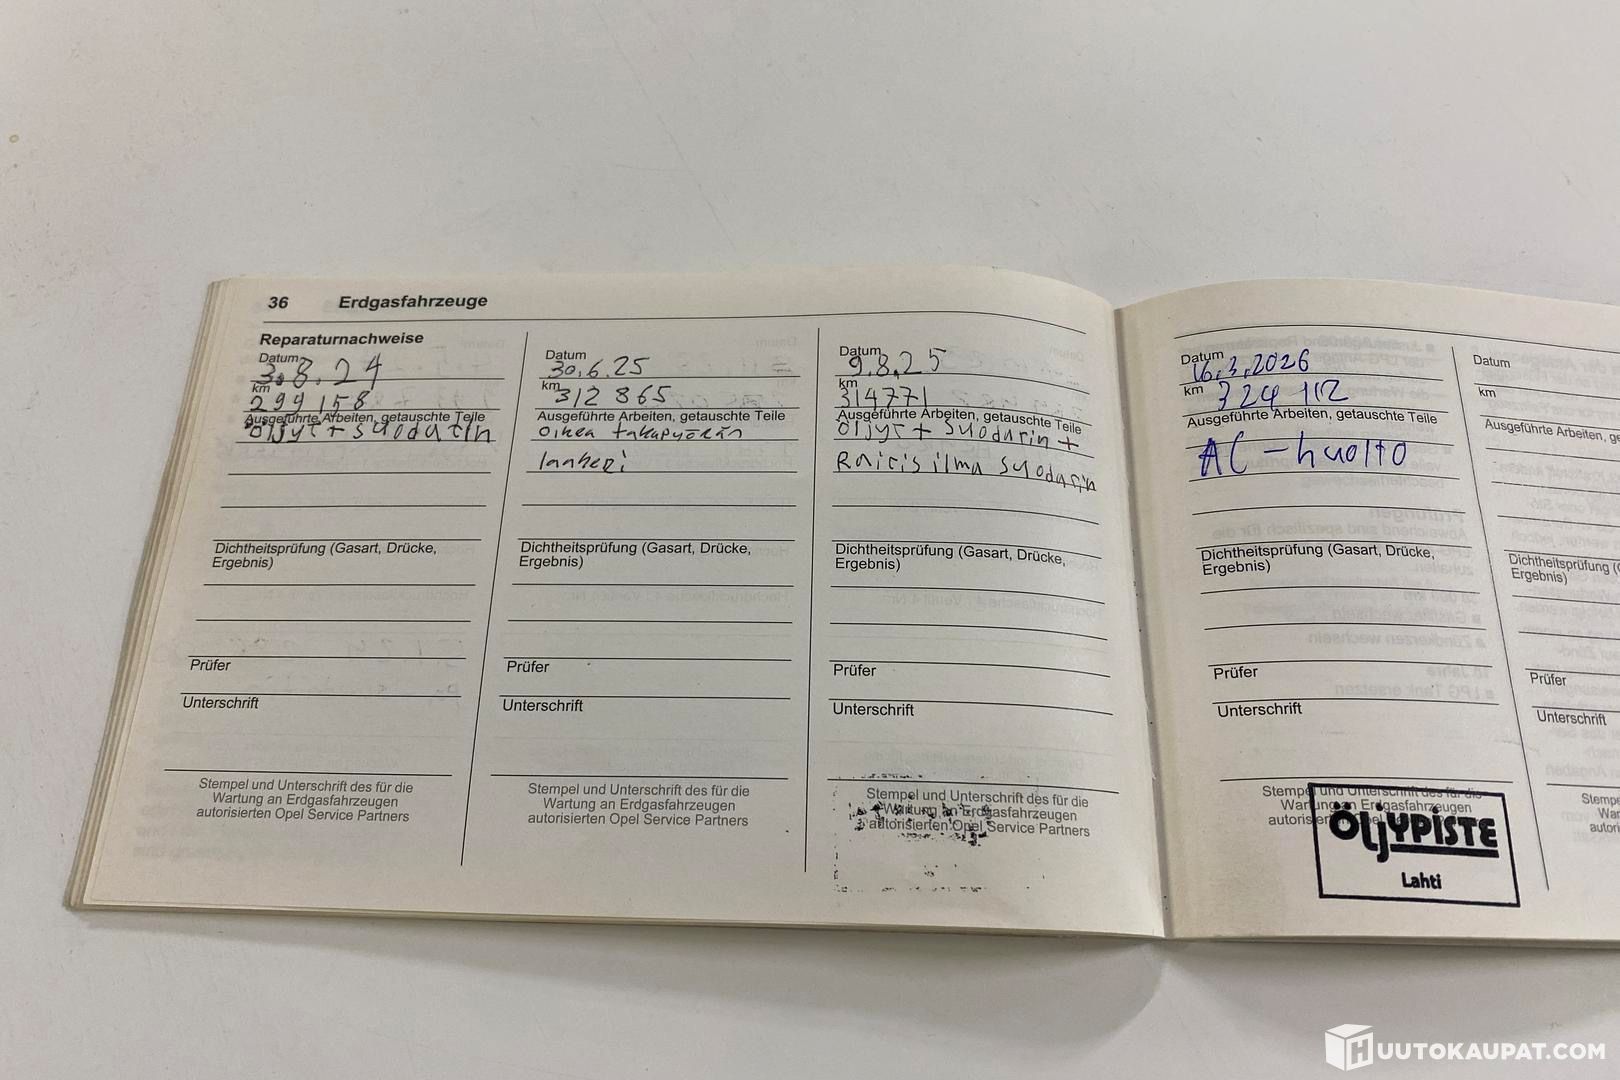 36 Erdgasfahrzeuge
Reparaturnachweise
Datum 3.8.24
km 299 158
Ausgeführte Arbeiten, getauschte Teile
öljyt + suodatin
Dichtheitsprüfung (Gasart, Drücke,
Ergebnis)
Prüfer
Unterschrift
Stempel und Unterschrift des für die
Wartung an Erdgasfahrzeugen
autorisierten Opel Service Partners
Datum 30.6.25
km 312 865
Ausgeführte Arbeiten, getauschte Teile
oikea takapyörän
laakeri
Dichtheitsprüfung (Gasart, Drücke,
Ergebnis)
Prüfer
Unterschrift
Stempel und Unterschrift des für die
Wartung an Erdgasfahrzeugen
autorisierten Opel Service Partners
Datum 9.8.25
km 314771
Ausgeführte Arbeiten, getauschte Teile
öljyt + suodatin +
Raitis ilma suodatin
Dichtheitsprüfung (Gasart, Drücke,
Ergebnis)
Prüfer
Unterschrift
Stempel und Unterschrift des für die
Wartung an Erdgasfahrzeugen
autorisierten Opel Service Partners
Datum 16.3.2026
km 324 112
Ausgeführte Arbeiten, getauschte Teile
AC - huolto
Dichtheitsprüfung (Gasart, Drücke,
Ergebnis)
Prüfer
Unterschrift
Stempel und Unterschrift des für die
Wartung an Erdgasfahrzeugen
ÖLJYPISTE
Lahti
Datum
km
Ausgeführte Arbeiten,
Dichtheitsprüfung
Ergebnis)
Prüfer
Unterschrift
HUUTOKAUPAT.COM